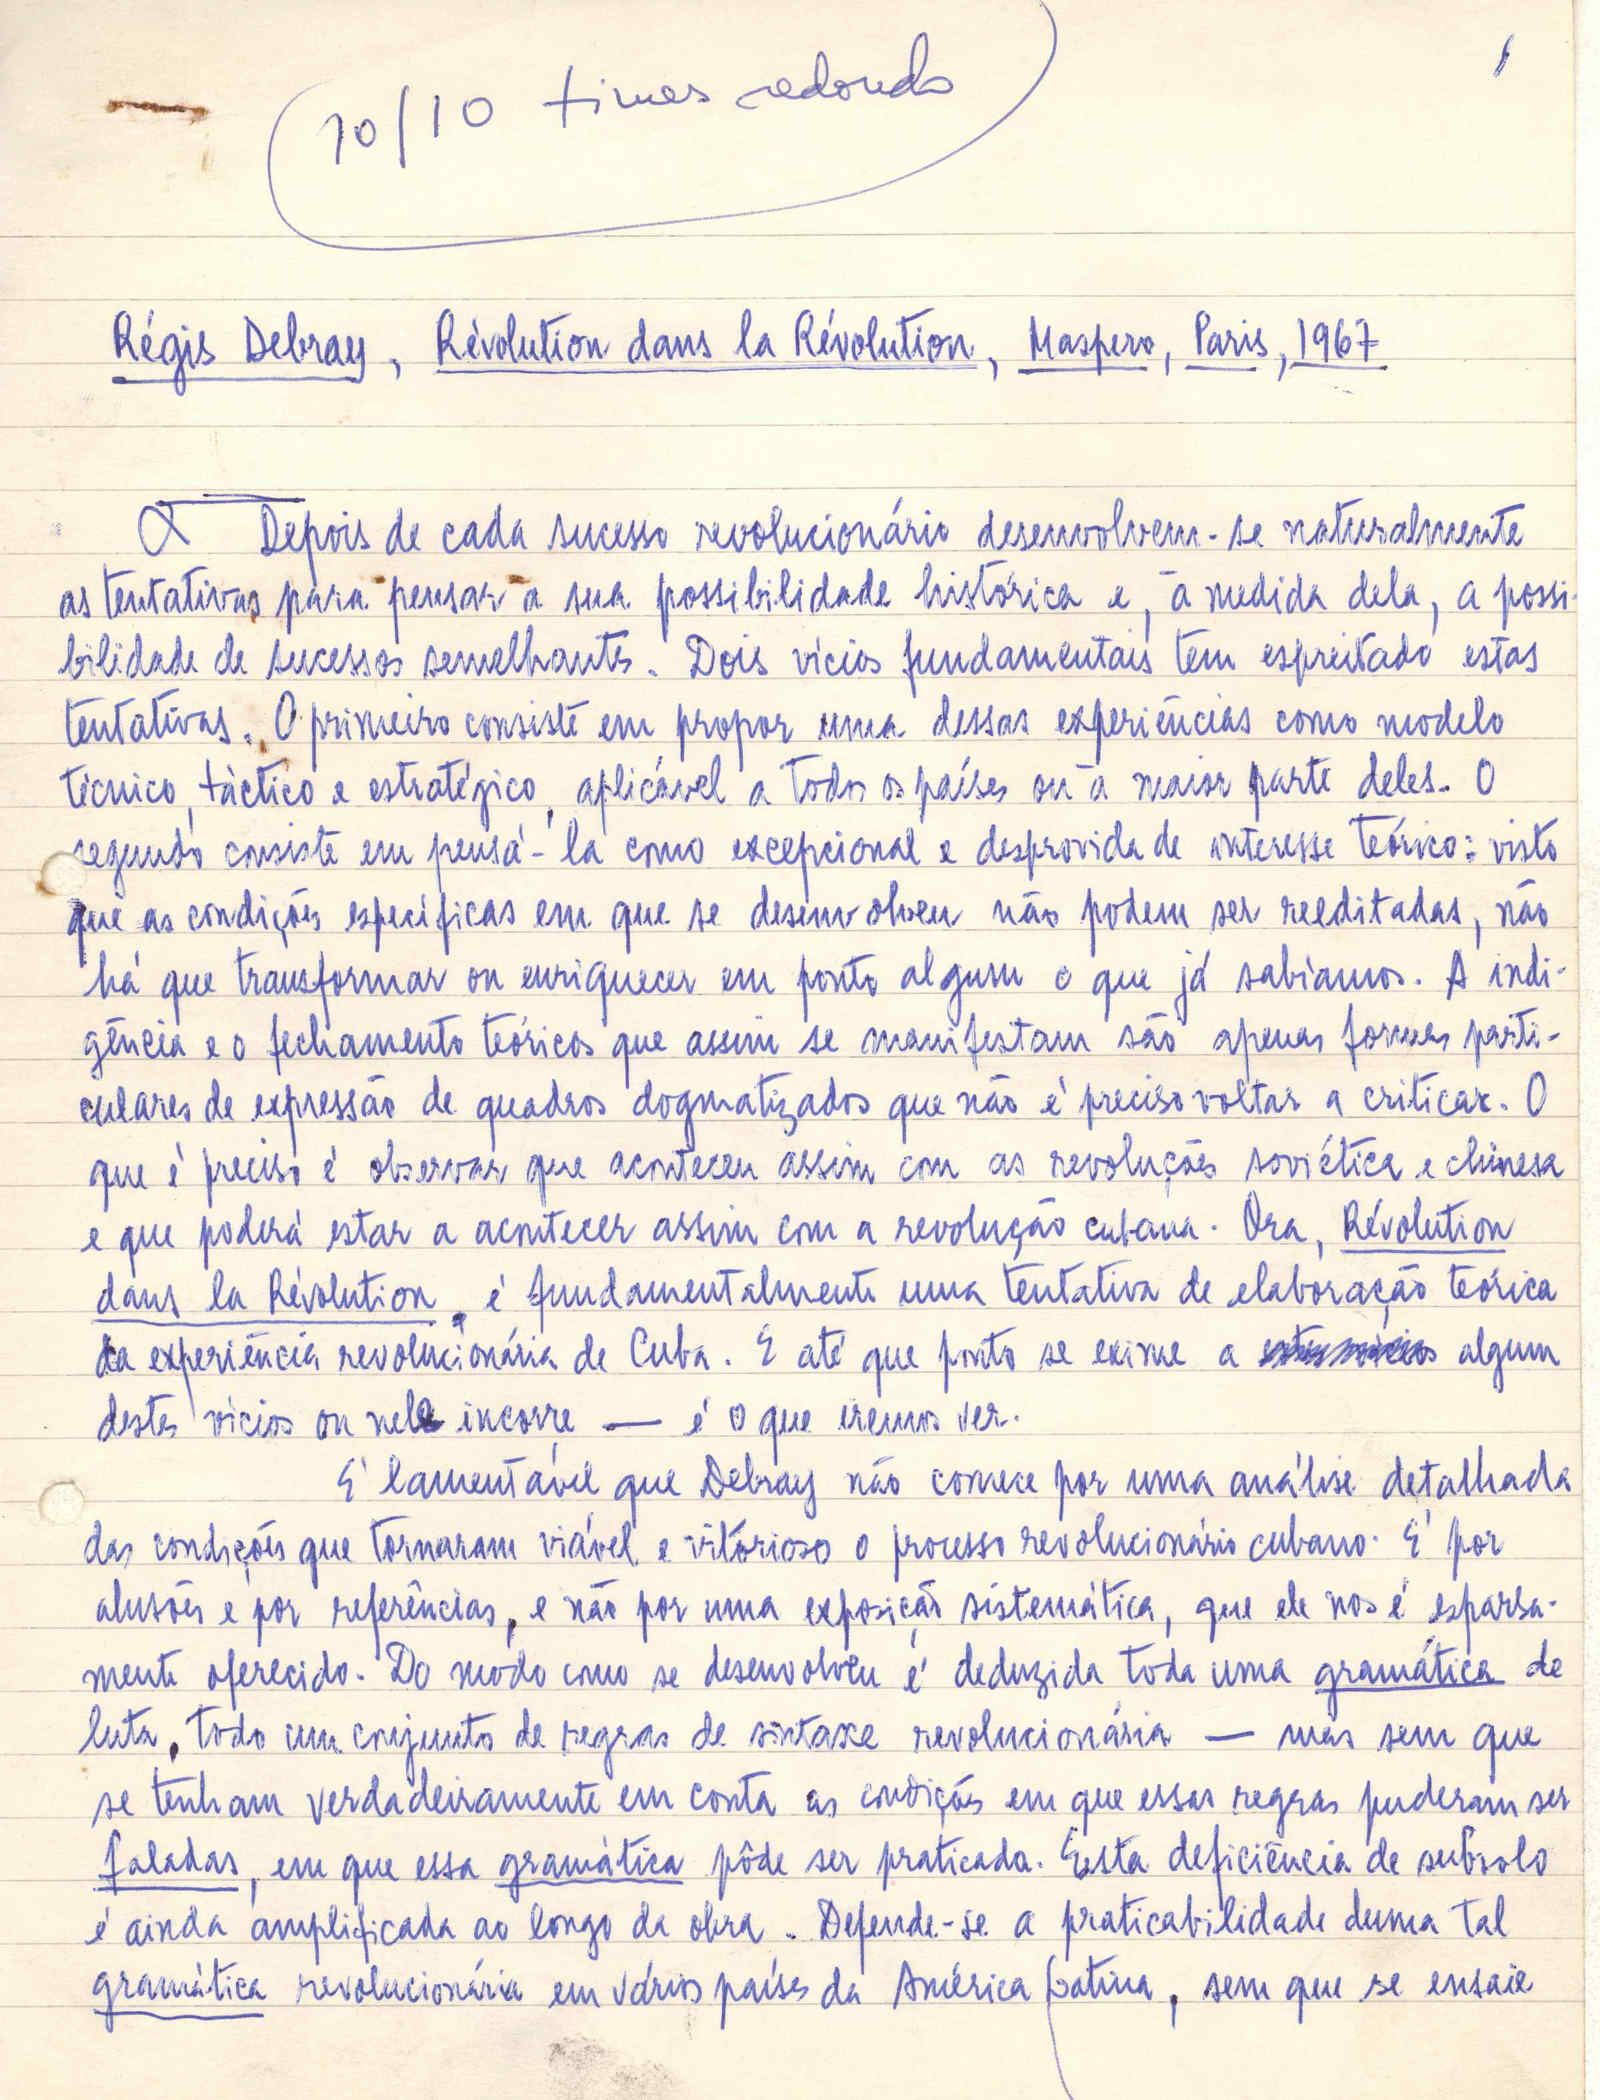 10/10 times redondo
1
Régis Debray, Révolution dans la Révolution, Maspero, Paris, 1967
Depois de cada sucesso revolucionário desenvolvem-se naturalmente
as tentativas para pensar a sua possibilidade histórica e, à medida dela, a possi-
bilidade de sucessos semelhantes. Dois vícios fundamentais têm espreitado estas
tentativas. O primeiro consiste em propor uma dessas experiências como modelo
técnico, táctico e estratégico, aplicável a todos os países ou à maior parte deles. O
segundo consiste em pensá-la como excepcional e desprovida de interesse teórico: visto
que as condições específicas em que se desenvolveu não podem ser reeditadas, não
há que transformar ou enriquecer em ponto algum o que já sabíamos. A indi-
gência e o fechamento teóricos que assim se manifestam são apenas formas parti-
culares de expressão de quadros dogmatizados que não é preciso voltar a criticar. O
que é preciso é observar que aconteceu assim com as revoluções soviética e chinesa
e que poderá estar a acontecer assim com a revolução cubana. Ora, Révolution
dans la Révolution, é fundamentalmente uma tentativa de elaboração teórica
da experiência revolucionária de Cuba. E até que ponto se exime a algum
destes vícios ou nele incorre — é o que iremos ver.
É lamentável que Debray não comece por uma análise detalhada
das condições que tornaram viável e vitorioso o processo revolucionário cubano. É por
alusões e por referências, e não por uma exposição sistemática, que ele nos é esparsa-
mente oferecido. Do modo como se desenvolveu é deduzida toda uma gramática de
luta, todo um conjunto de regras de sintaxe revolucionária — mas sem que
se tenham verdadeiramente em conta as condições em que essas regras puderam ser
faladas, em que essa gramática pôde ser praticada. Esta deficiência de subsolo
é ainda amplificada ao longo da obra. Defende-se a praticabilidade duma tal
gramática revolucionária em vários países da América Latina, sem que se ensaie